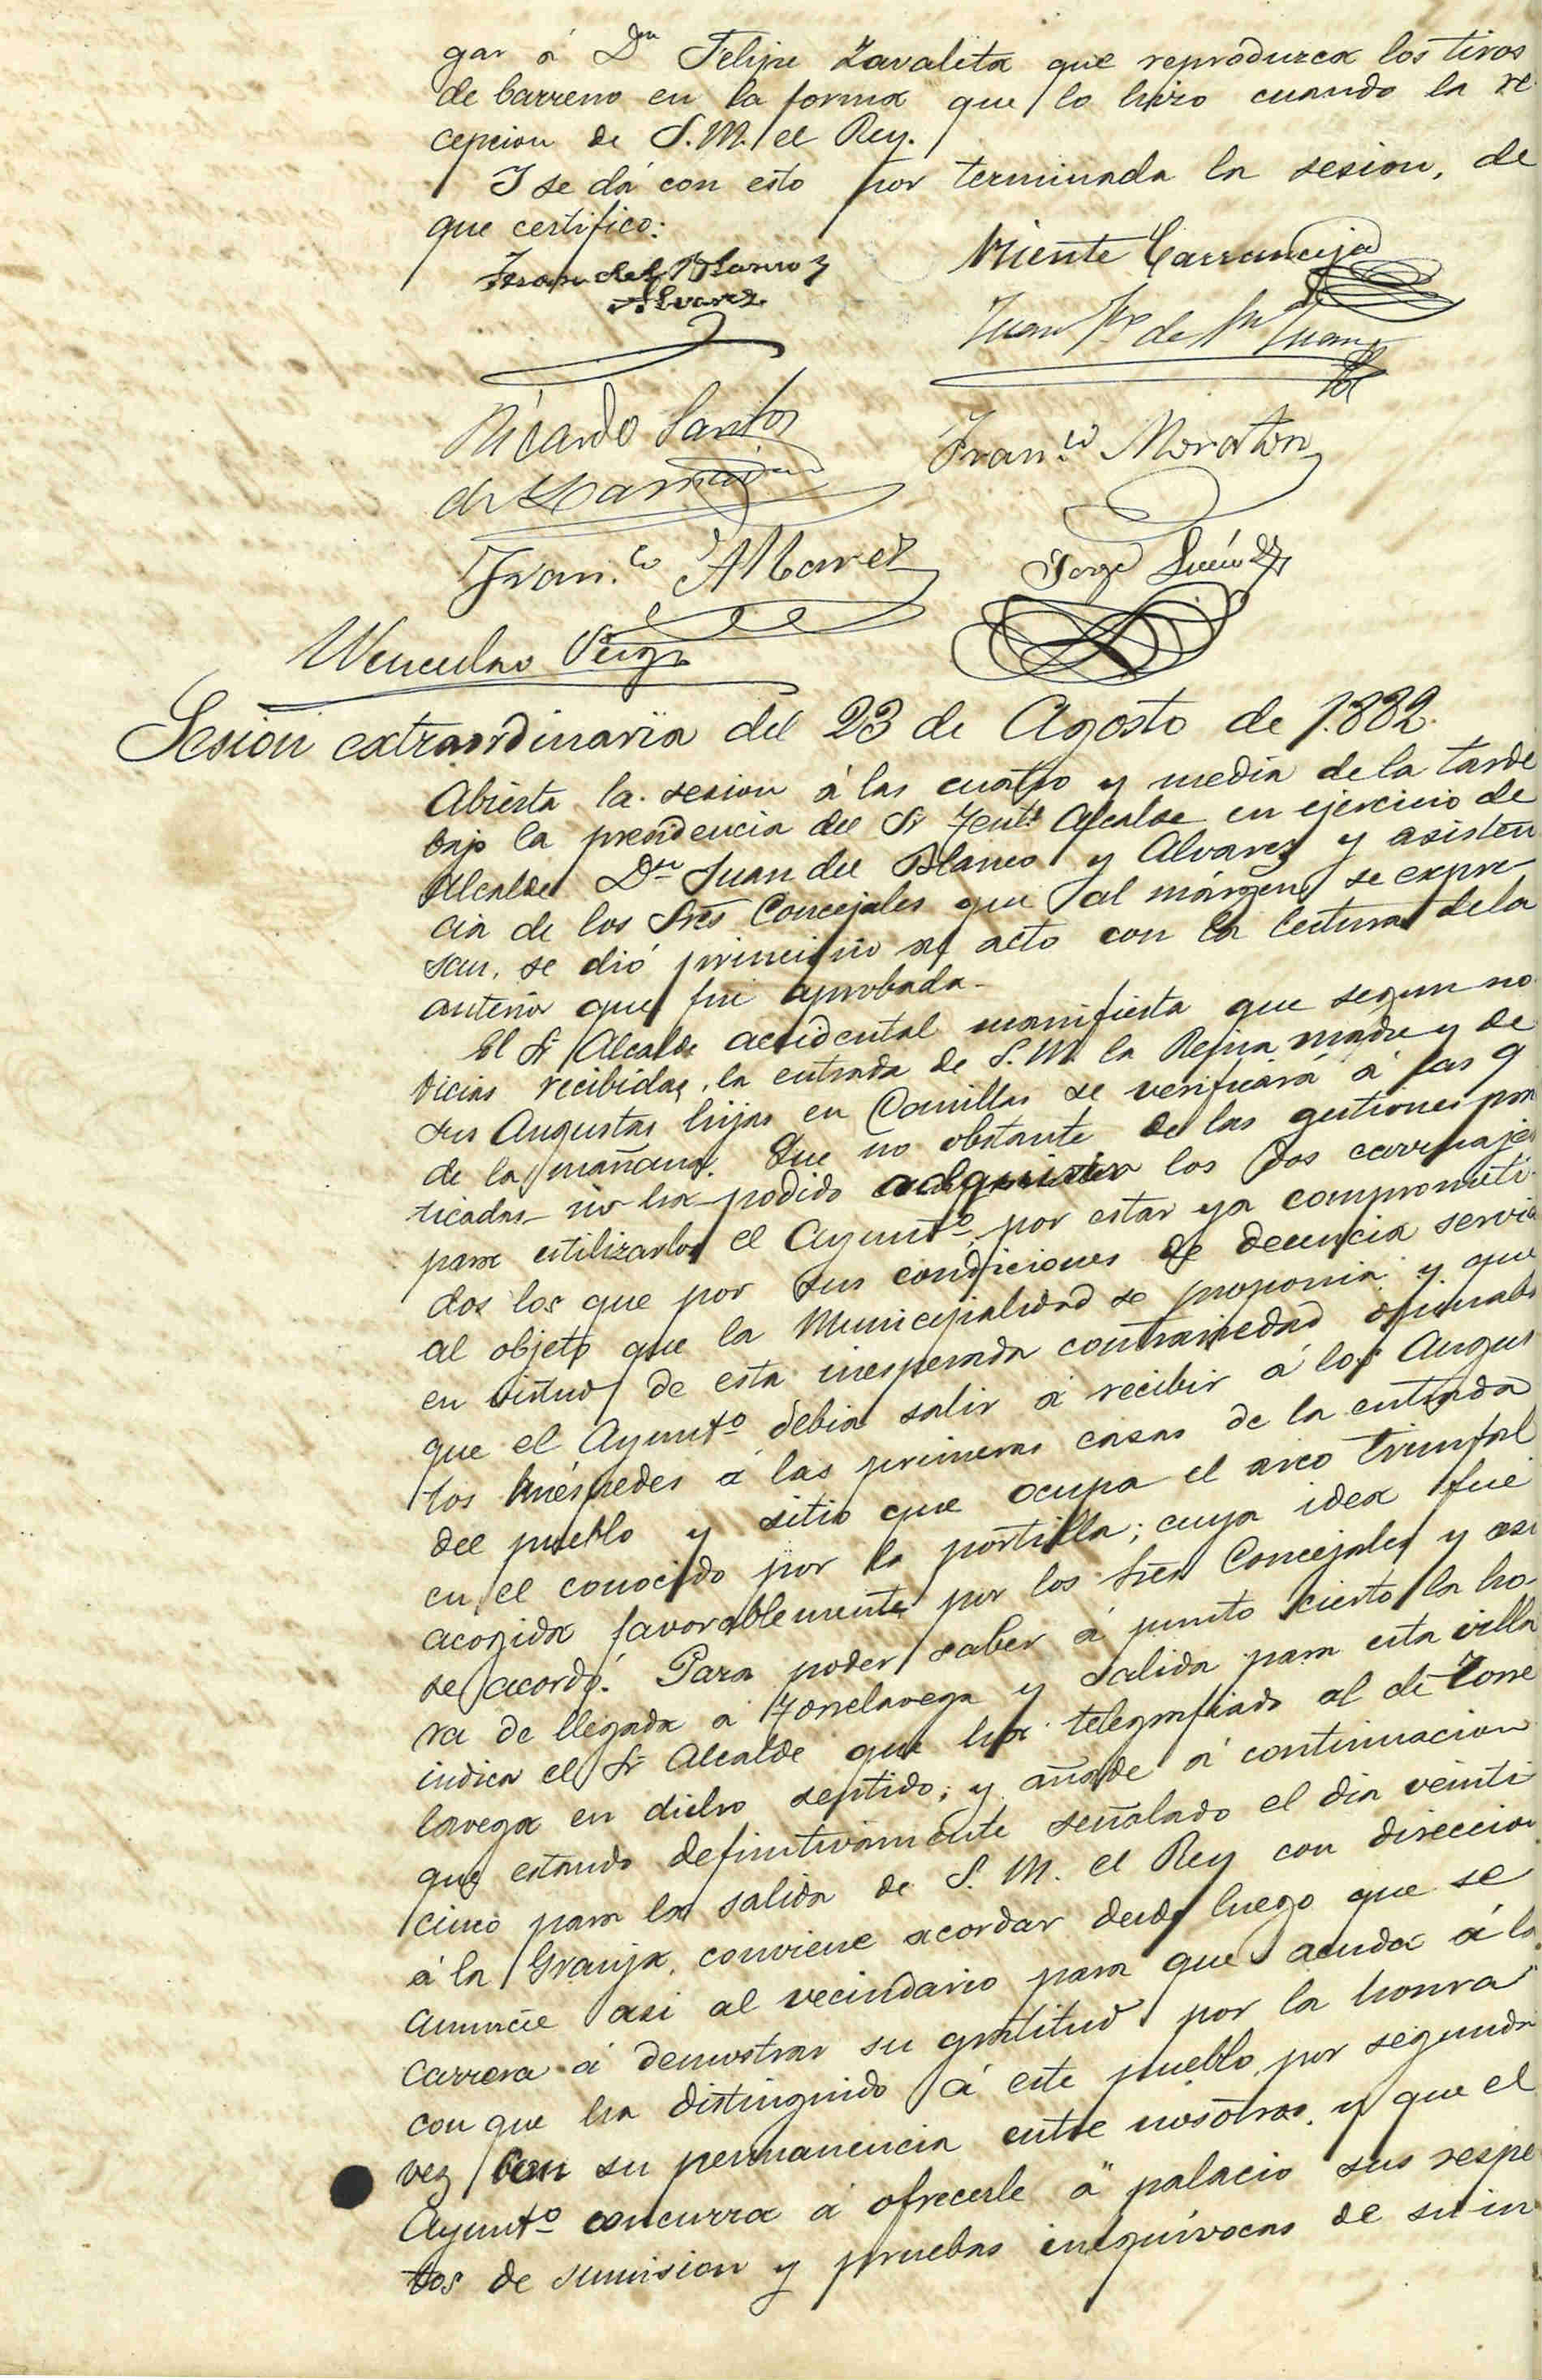 gar á Dn Felipe Zavaleta que reproduzca los tiros
de barreno en la forma que lo hizo cuando la re
cepcion de S.M. el Rey.
Y se dá con esto por terminada la sesion, de
que certifico:
Juan del Blanco y
Alvarez
Vicente Carranceja
Juan de Juan
Ricardo Santos
de
Franco Moraton
Franco Alvarez
Jorge
Wenceslao
Sesion extraordinaria del 23 de Agosto de 1.882.
Abierta la sesion á las cuatro y media de la tarde
bajo la presidencia del Sr Tente Alcalde en ejercicio de
Alcalde Dn Juan del Blanco y Alvarez y asisten
cia de los Sres Concejales que al márgen se expre-
san, se dió principio al acto con la lectura de la
anterior que fue aprobada.
El Sr Alcalde accidental manifiesta que segun no
ticias recibidas, la entrada de S.M. la Reina madre y de
sus Augustas hijas en Comillas se verificará á las 9
de la mañana. Que no obstante de las gestiones prac
ticadas no ha podido adquirir los dos carruajes
para utilizarlos el Ayunto por estar ya comprometi-
dos los que por sus condiciones de decencia servia
al objeto que la Municipalidad se proponia y que
en virtud de esta inesperada contrariedad opinaba
que el Ayunto debia salir á recibir á los Augus
tos huéspedes á las primeras casas de la entrada
del pueblo y sitio que ocupa el arco triunfal
en el conocido por la portilla; cuya idea fué
acogida favorablemente por los Sres Concejales y asi
se acordó. Para poder saber á punto cierto la ho-
ra de llegada á Torrelavega y salida para esta villa
indica el Sr Alcalde que ha telegrafiado al de Torre
lavega en dicho sentido; y añade á continuacion
que estando definitivamente señalado el dia veinti
cinco para la salida de S. M. el Rey con direccion
á la Granja, conviene acordar desde luego que se
anuncie asi al vecindario para que acuda á la
carrera á demostrar su gratitud por la honra
con que ha distinguido á este pueblo por segunda
vez con su permanencia entre nosotros, y que el
Ayunto concurra á ofrecerle á palacio sus respe
tos de sumision y pruebas inequívocas de su in